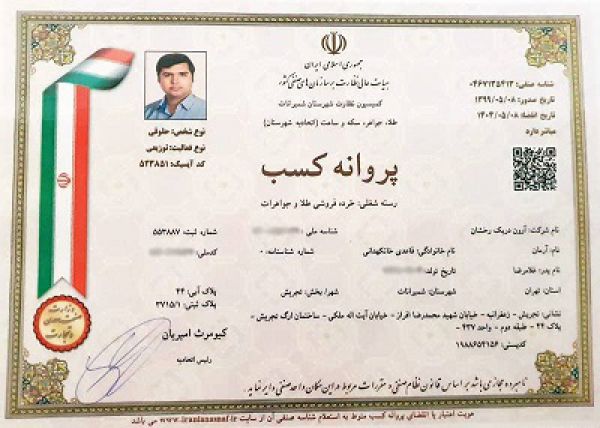 جمهوری اسلامی ایران
هیات عالی نظارت بر سازمان های صنفی کشور
کمیسیون نظارت شهرستان شمیرانات
طلا، جواهر، سکه و ساعت (اتحادیه شهرستان)
شناسه صنفی: ۰۴۶۷۱۳۵۴۱۳
تاریخ صدور: ۱۳۹۹/۰۵/۰۸
تاریخ انقضاء: ۱۴۰۴/۰۵/۰۸
مباشر دارد
نوع شخص: حقوقی
نوع فعالیت: توزیعی
کد آیسیک: ۵۲۳۸۵۱
پروانه کسب
رسته شغلی: خرده فروشی طلا و جواهرات
نام شرکت: آرون دریک رخشان شناسه ملی: شماره ثبت: ۵۵۳۸۸۷
نام: آرمان نام خانوادگی: قاعدی خانکهدانی شماره شناسنامه: ۰ کدملی:
نام پدر: غلامرضا تاریخ تولد:
استان: تهران شهرستان: شمیرانات شهر/ بخش: تجریش پلاک آبی: ۲۴
پلاک ثبتی: ۳۷۱۵/۱
نشانی: تجریش - زعفرانیه - خیابان شهید محمدرضا افراز - خیابان آیت اله ملکی - ساختمان ارگ تجریش -
پلاک ۲۴ - طبقه دوم - واحد ۴۳۷
کدپستی: ۱۹۸۸۶۵۳۱۵۶
کیومرث امیریان
رئیس اتحادیه
وزارت صنعت، معدن و تجارت
نامبرده مجاز می باشد بر اساس قانون نظام صنفی و مقررات مربوط در این مکان واحد صنفی دایر نماید.
جهت اعتبار یا انقضای پروانه کسب منوط به استعلام شناسه صنفی آن از سایت www.iranianasnaf.ir می باشد